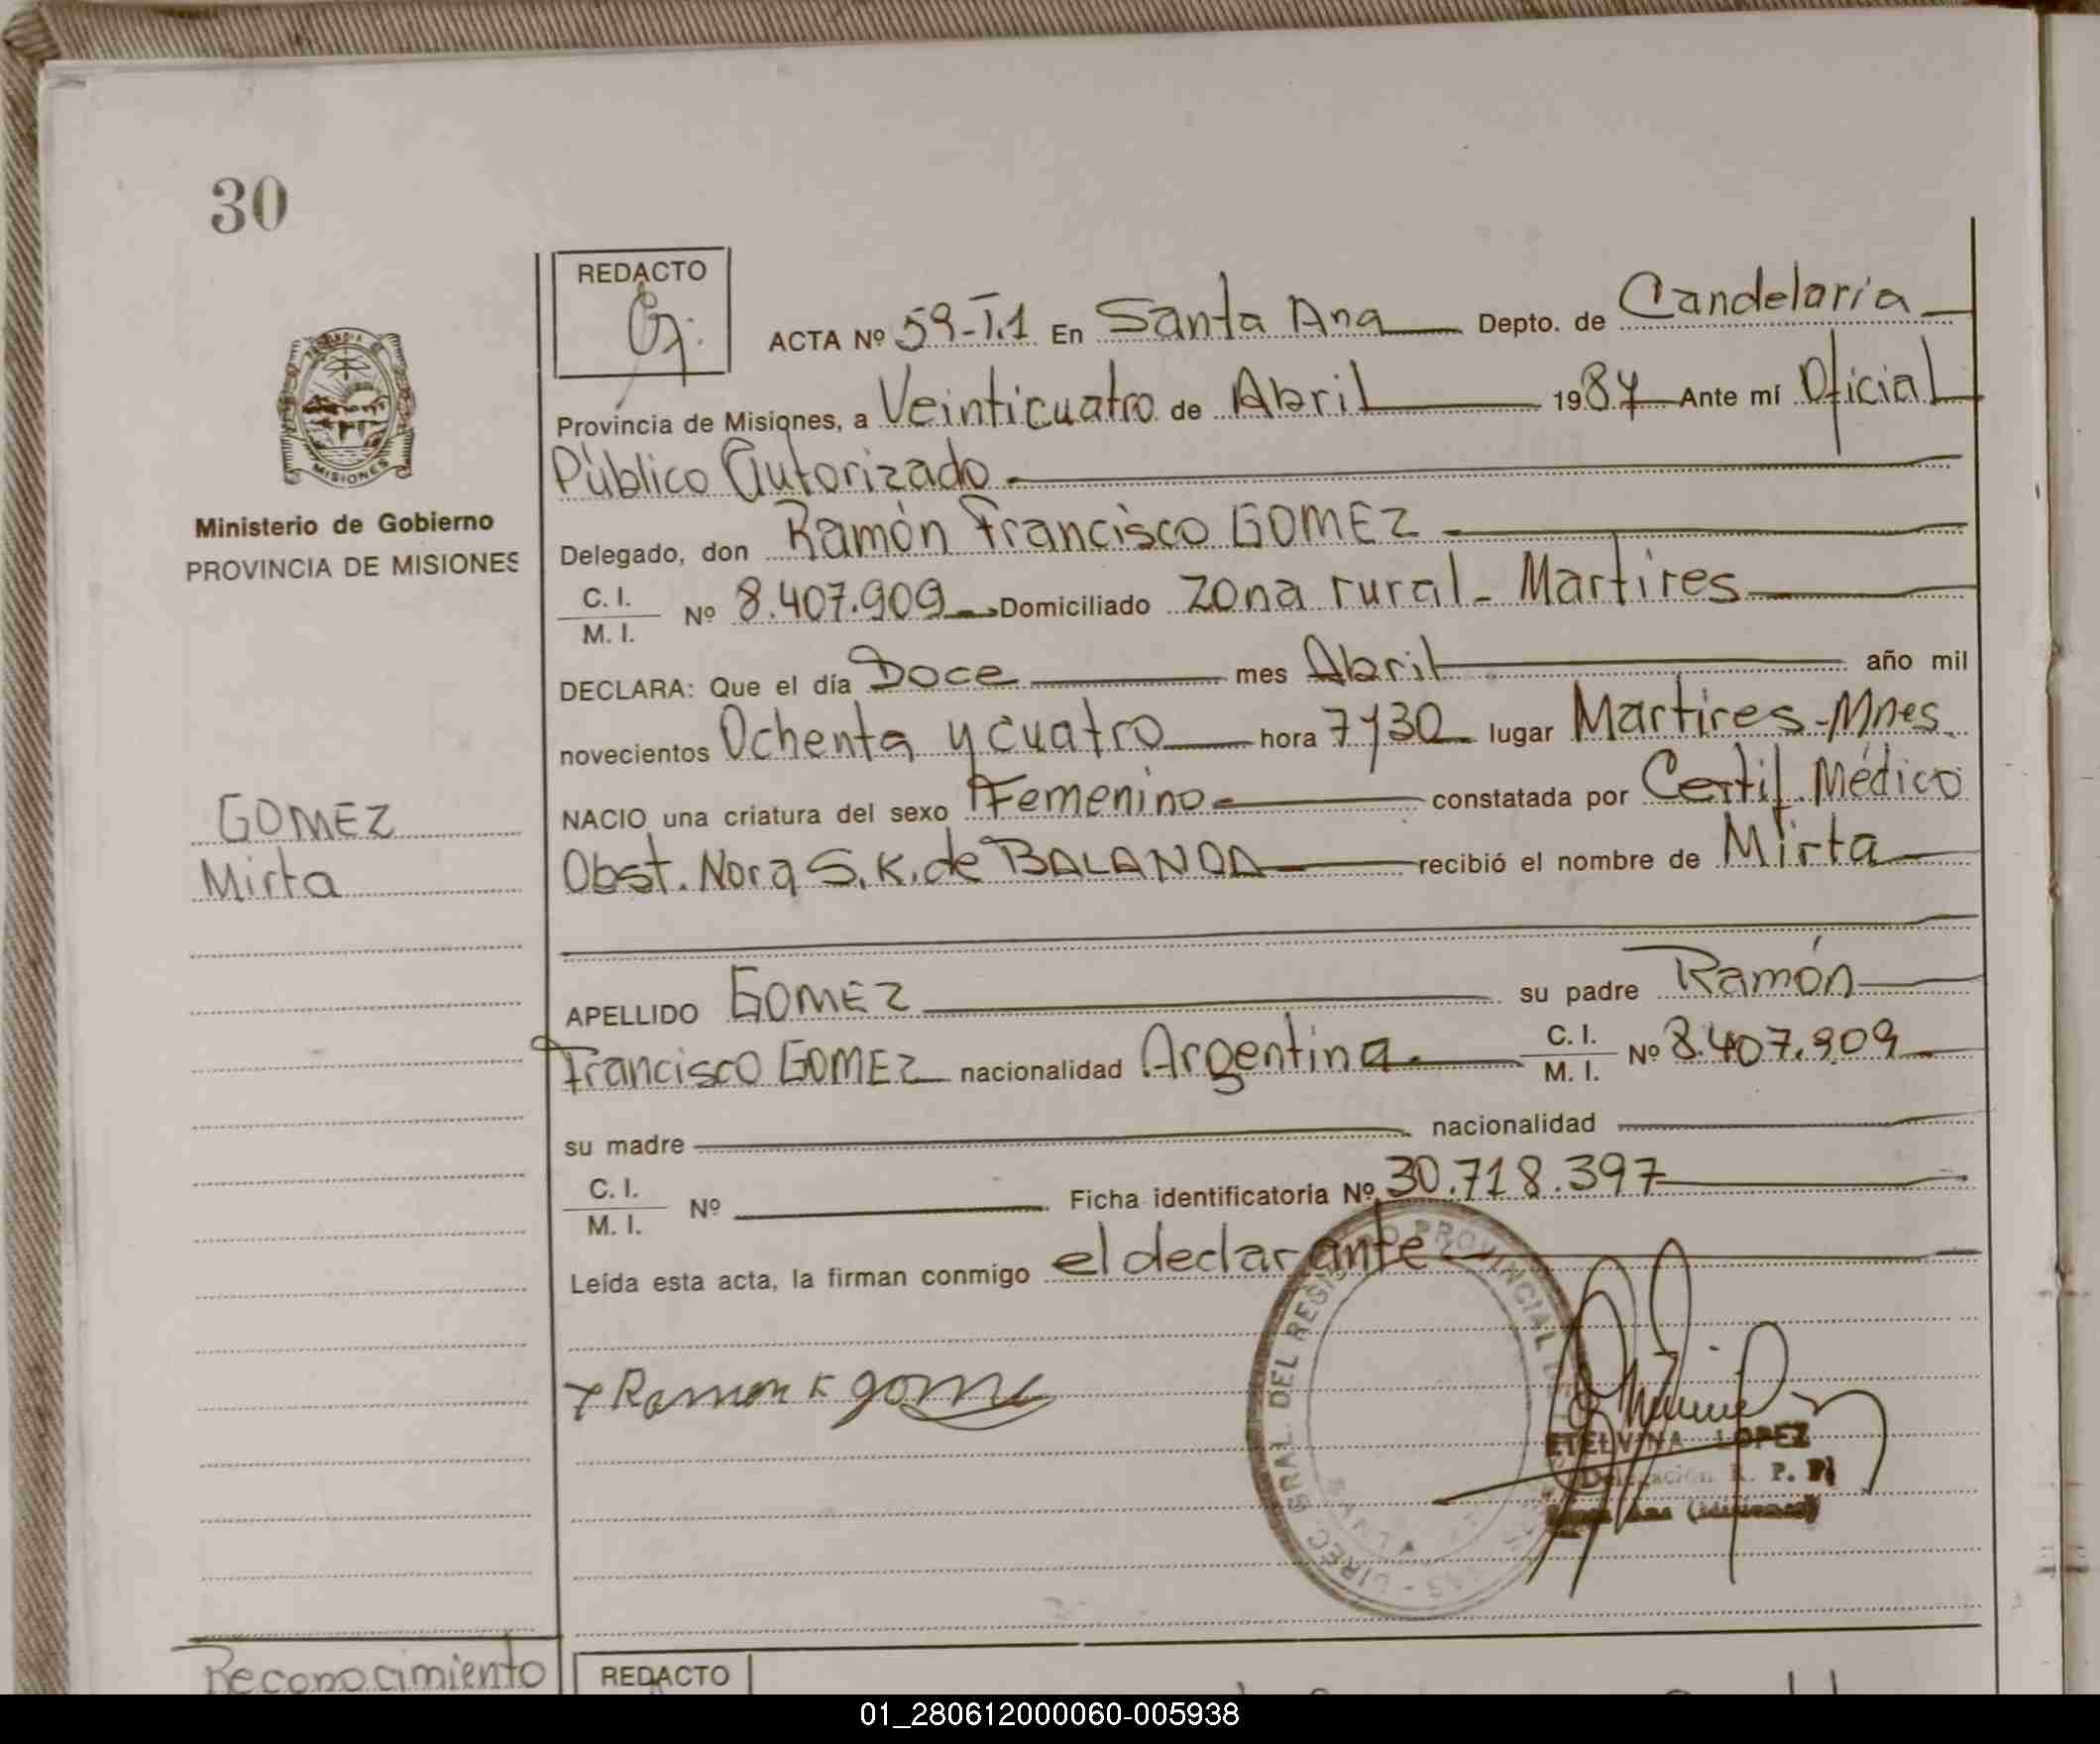 30
REDACTO
ACTA Nº 59-T.1 En Santa Ana Depto. de Candelaria
Provincia de Misiones, a Veinticuatro de Abril 1987 Ante mí Oficial
Público Autorizado
Delegado, don Ramón Francisco GOMEZ
C. I.
M. I. Nº 8.407.909 Domiciliado zona rural - Martires
DECLARA: Que el día Doce mes Abril año mil
novecientos Ochenta y cuatro hora 7y30 lugar Martires-Mnes.
NACIO una criatura del sexo Femenino constatada por Certif. Médico
Obst. Nora S. K. de BALANDA recibió el nombre de Mirta
APELLIDO GOMEZ su padre Ramón
Francisco GOMEZ nacionalidad Argentina C. I.
M. I. Nº 8.407.909
su madre nacionalidad
C. I.
M. I. Nº Ficha identificatoria Nº 30.718.397
Leída esta acta, la firman conmigo el declarante
Ramon F gome
ETELVINA LOPEZ
Delegación R. P. P.
Santa Ana (Misiones)
DIREC. GRAL. DEL REGISTRO PROVINCIAL
MISIONES
Ministerio de Gobierno
PROVINCIA DE MISIONES
GOMEZ
Mirta
Reconocimiento
REDACTO
01_280612000060-005938